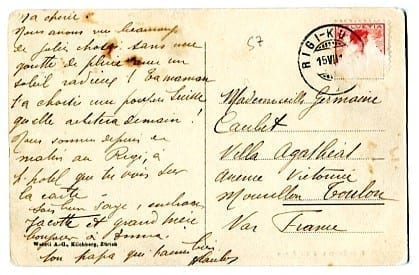 Ma chérie !
Nous avons vu beaucoup
de jolies choses sans une
goutte de pluie sous un
soleil radieux ! Ta maman
t'a choisi une poupée Suisse
qu'elle achètera demain !
Nous sommes depuis ce
matin au Rigi, à
l'hotel que tu vois sur
la carte
sois bien sage, embrasse
Jacotte et grand'mère
bonjour à Emma.
Ton papa qui t'aime bien
57
RIGI-KU
15 VII
HELVETIA
Mademoiselle Germaine
Caulet
Villa Agathéat
avenue Victoire
Mourillon Toulon
Var France
Wehrli A.-G., Kilchberg, Zürich